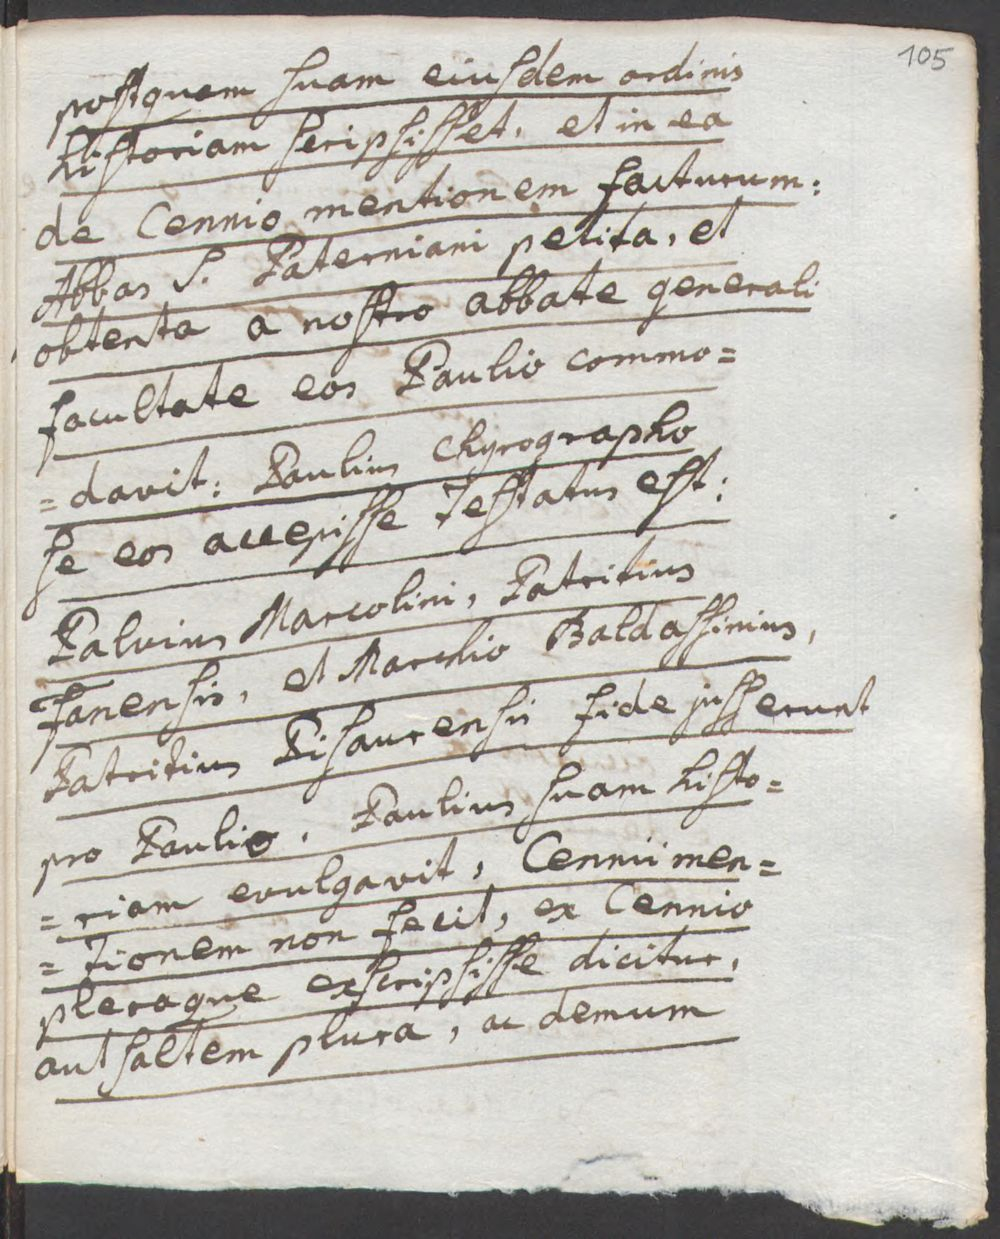 105
postquam suam eiusdem ordinis
historiam scripsisset, et in ea
de Cennio mentionem facturum:
Abbas S. Paterniani petita, et
obtenta a nostro abbate generali
facultate eos Paulio commo=
=davit: Paulius chyrographo
se eos accepisse testatus est:
Palvius Marcolini, Patritius
fanensis, et Marchio Baldassinius,
Patritius Pisaurensis fide jusserunt
pro Paulio. Paulius suam histo=
=riam evulgavit, Cennii men=
=tionem non fecit, ex Cennio
pleraque exscripsisse dicitur,
aut saltem plura, ac demum